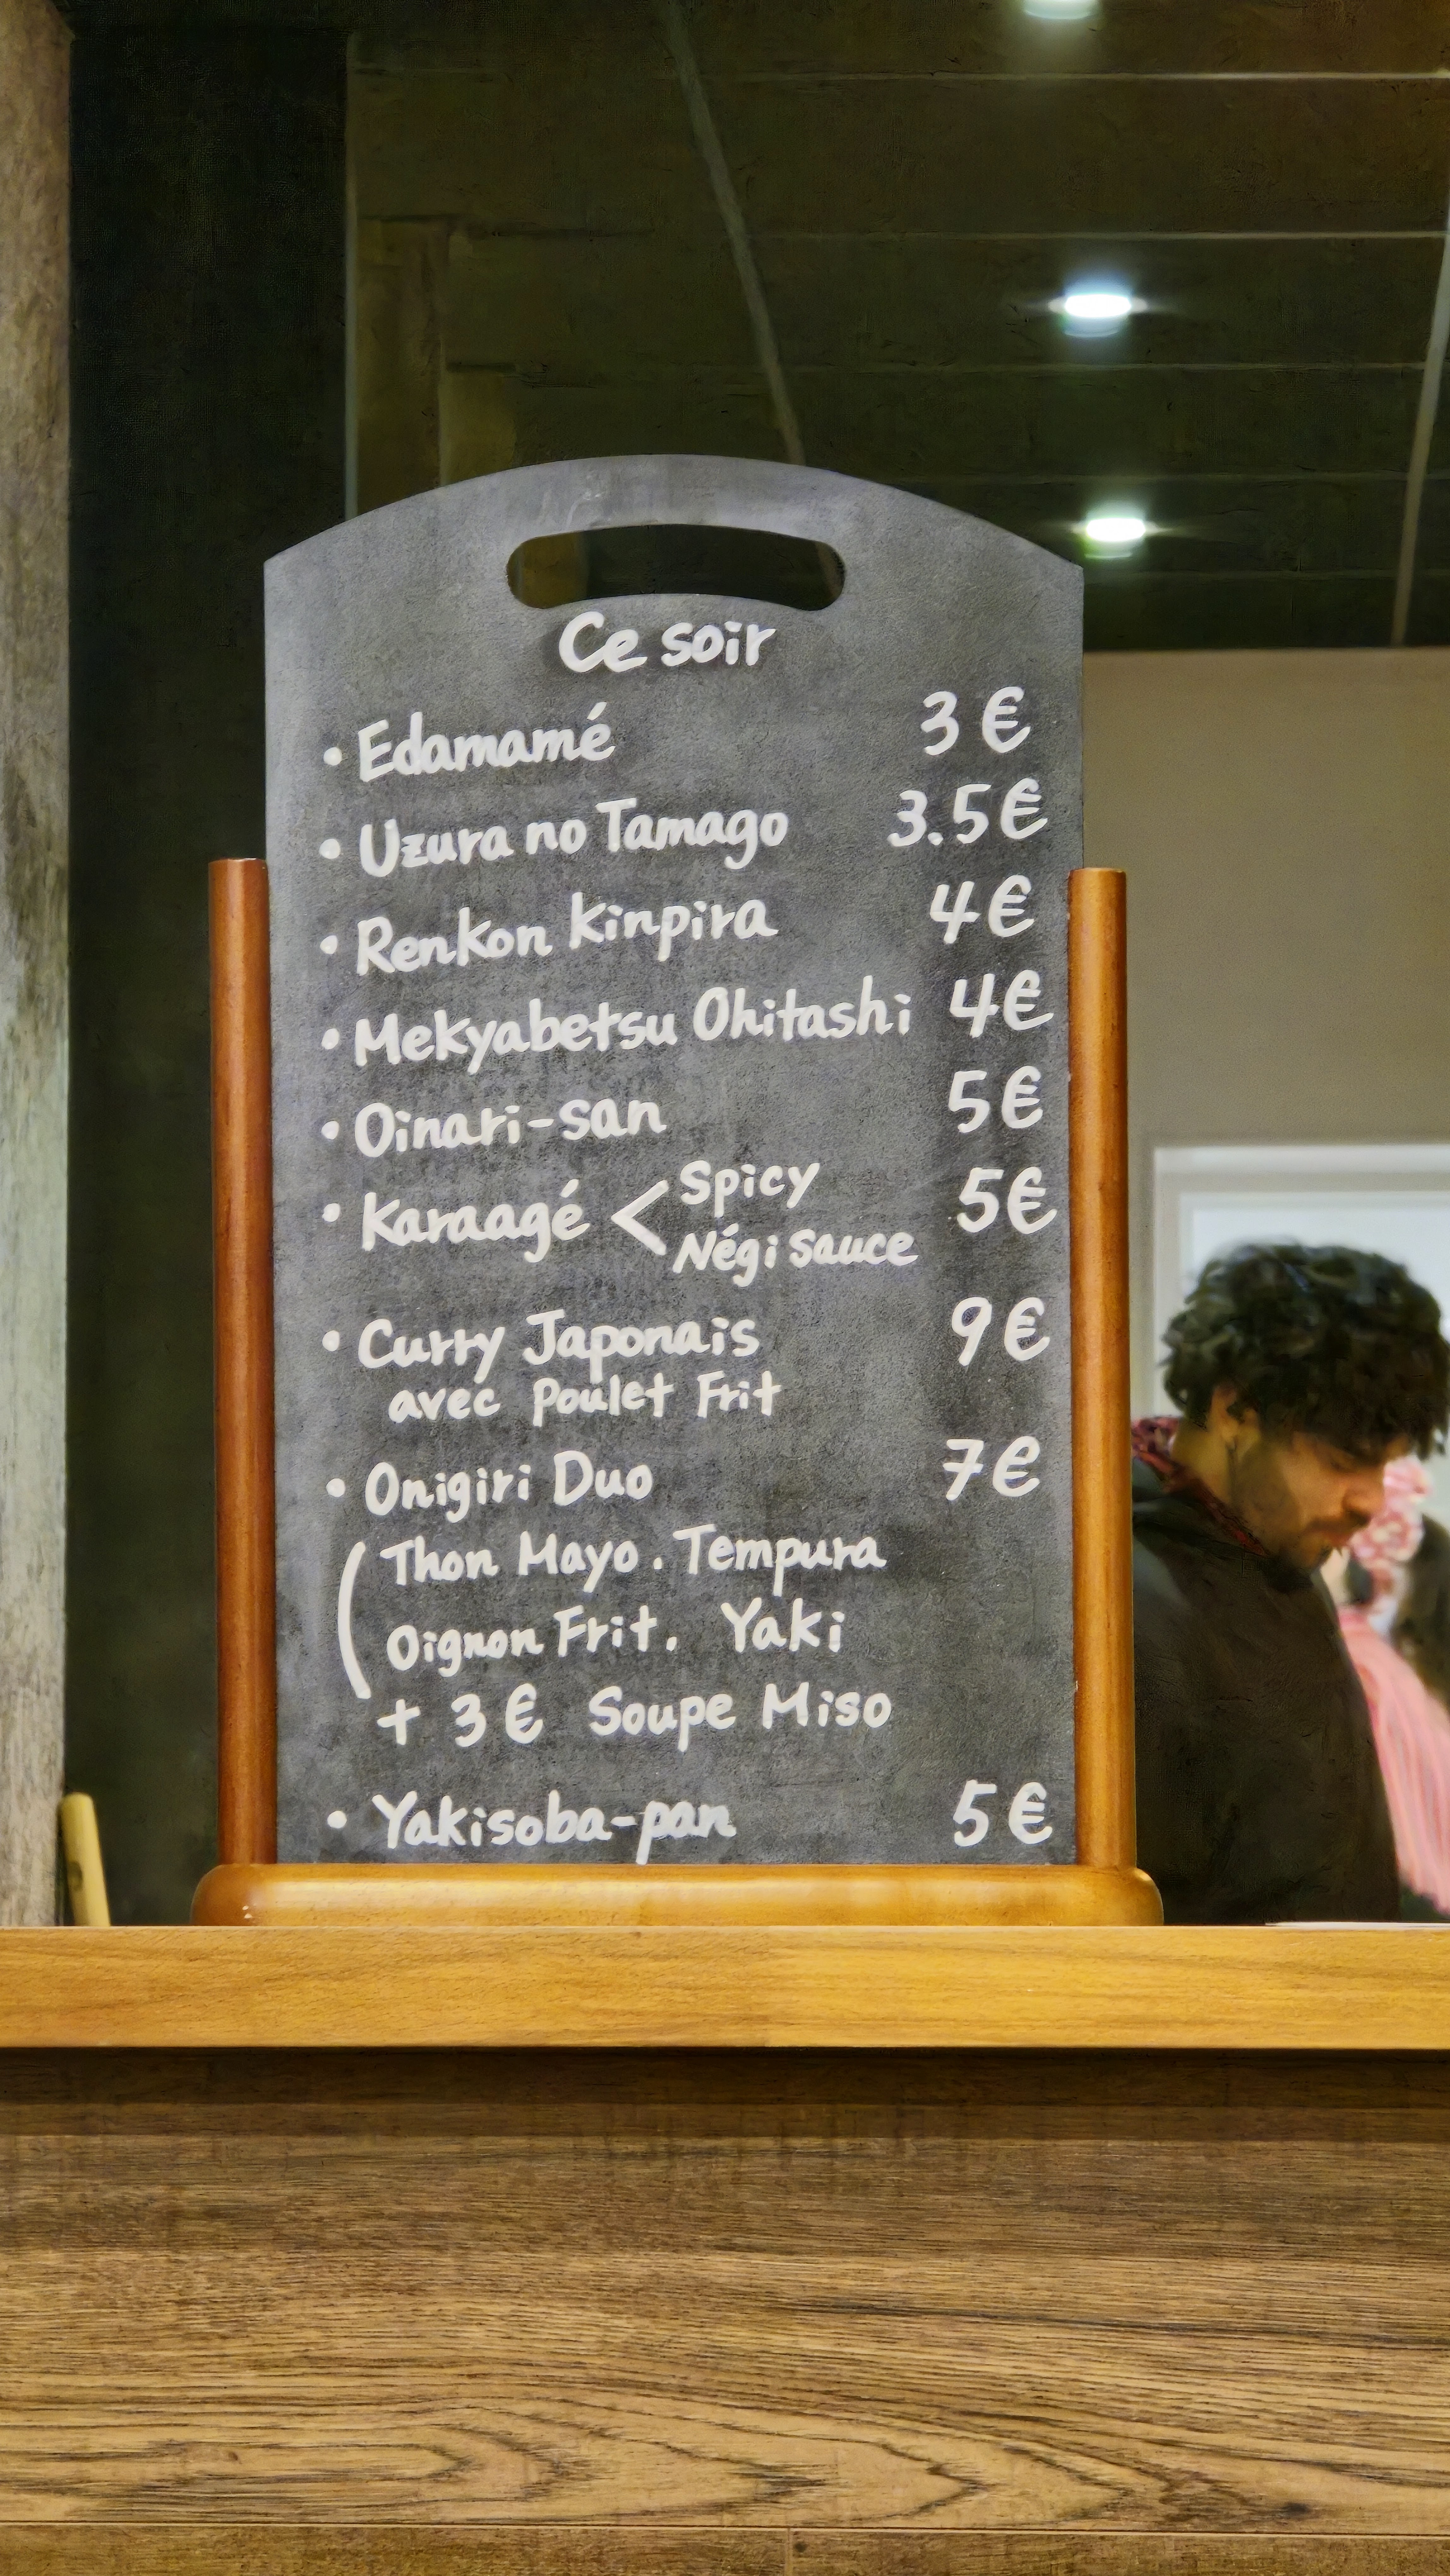 Ce soir
• Edamamé 3€
• Uzura no Tamago 3.5€
• Renkon Kinpira 4€
• Mekyabetsu Ohitashi 4€
• Oinari-san 5€
• Karaagé < Spicy 5€
Négi sauce
• Curry Japonais 9€
avec Poulet Frit
• Onigiri Duo 7€
( Thon Mayo . Tempura
Oignon Frit . Yaki
+ 3€ Soupe Miso
• Yakisoba-pan 5€